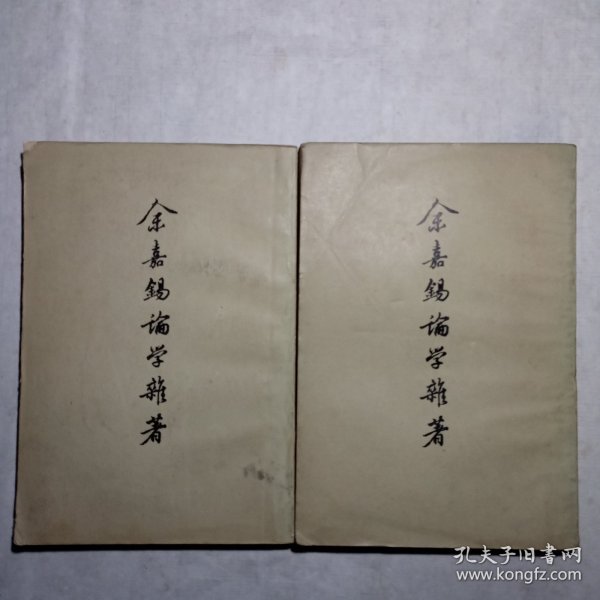 余嘉錫論学雜著
余嘉錫論学雜著
孔夫子旧書网
www.kongfz.com